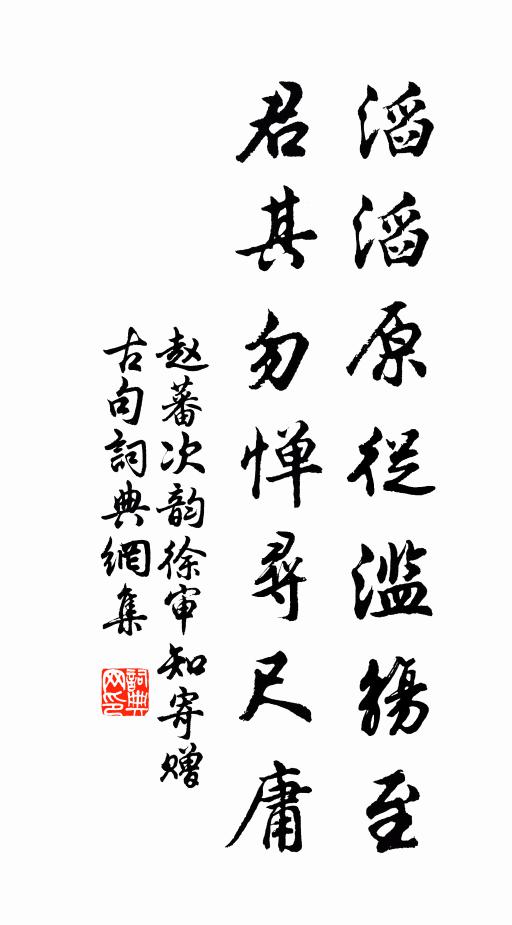 滔滔原從濫觴至
君其勿惮尋尺庸
赵蕃次韵徐审知寄赠
古句詞典網集
詞典网印